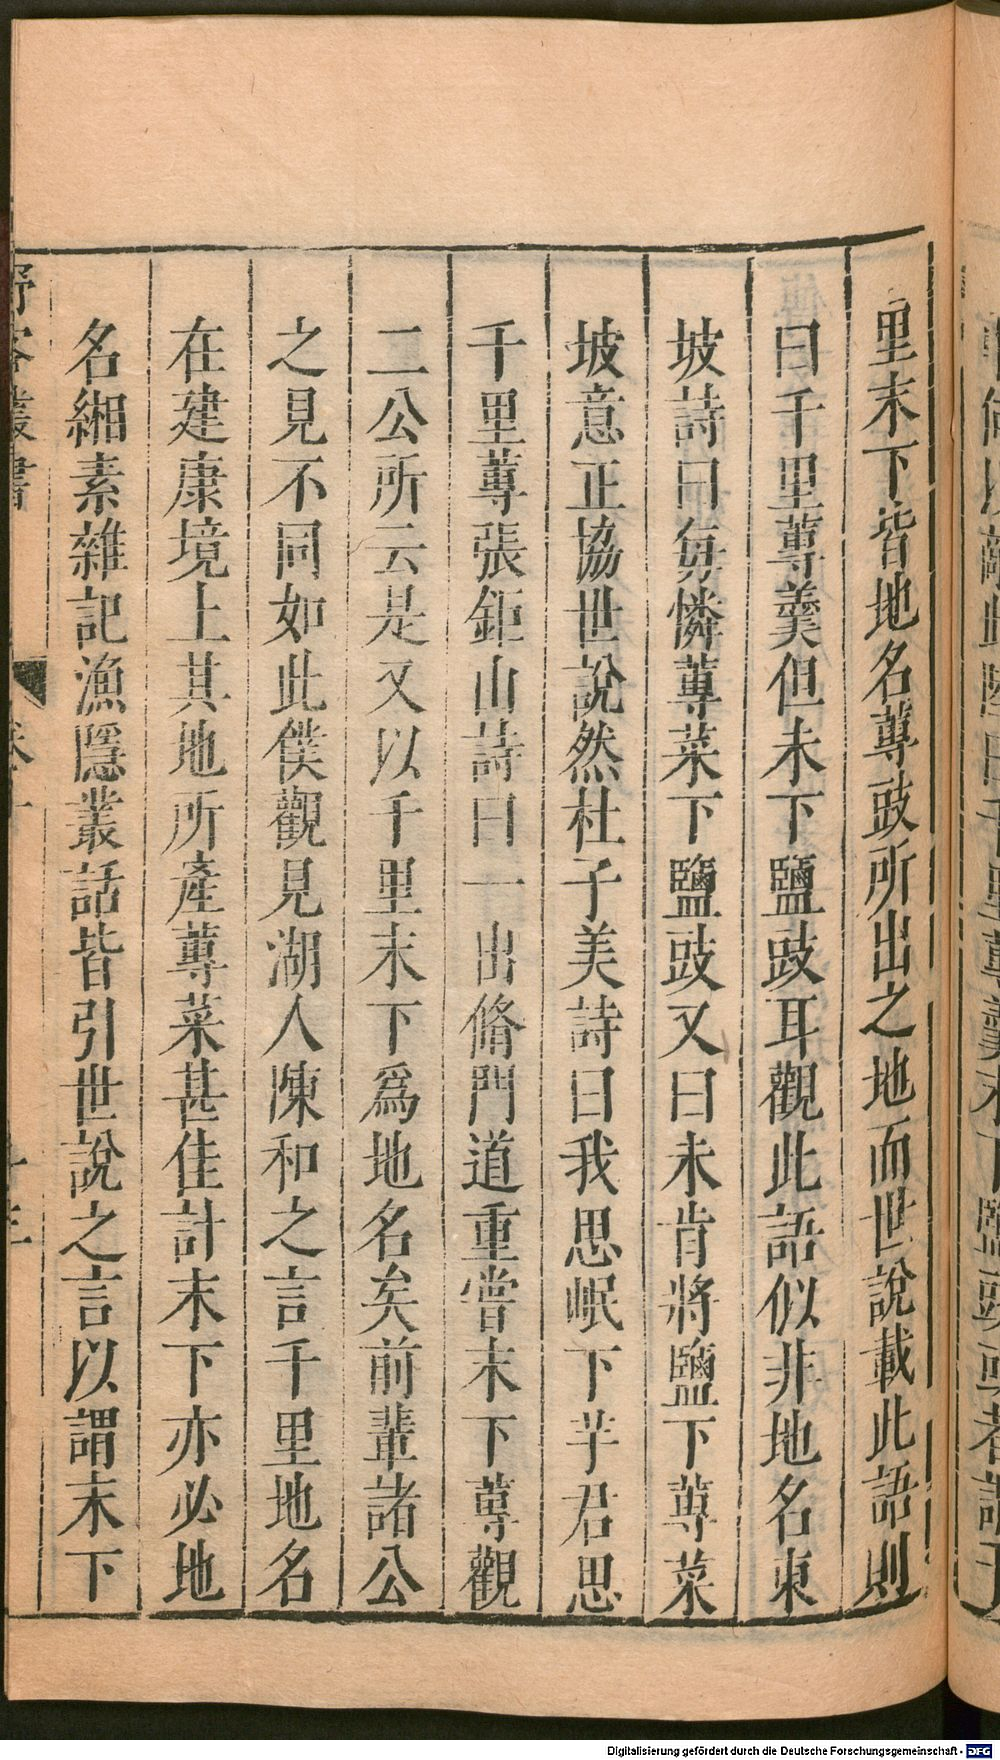 里末下皆地名蓴豉所出之地而世說載此語則
曰千里蓴羹但未下鹽豉耳觀此語似非地名東
坡詩曰每憐蓴菜下鹽豉又曰未肯將鹽下蓴菜
坡意正協世說然杜子美詩曰我思岷下芋君思
千里蓴張鉅山詩曰一出脩門道重嘗末下蓴觀
二公所云是又以千里末下爲地名矣前輩諸公
之見不同如此僕觀見湖人陳和之言千里地名
在建康境上其地所產蓴菜甚佳計末下亦必地
名緗素雜記漁隱叢話皆引世說之言以謂末下
野客叢書
Digitalisierung gefördert durch die Deutsche Forschungsgemeinschaft - DFG